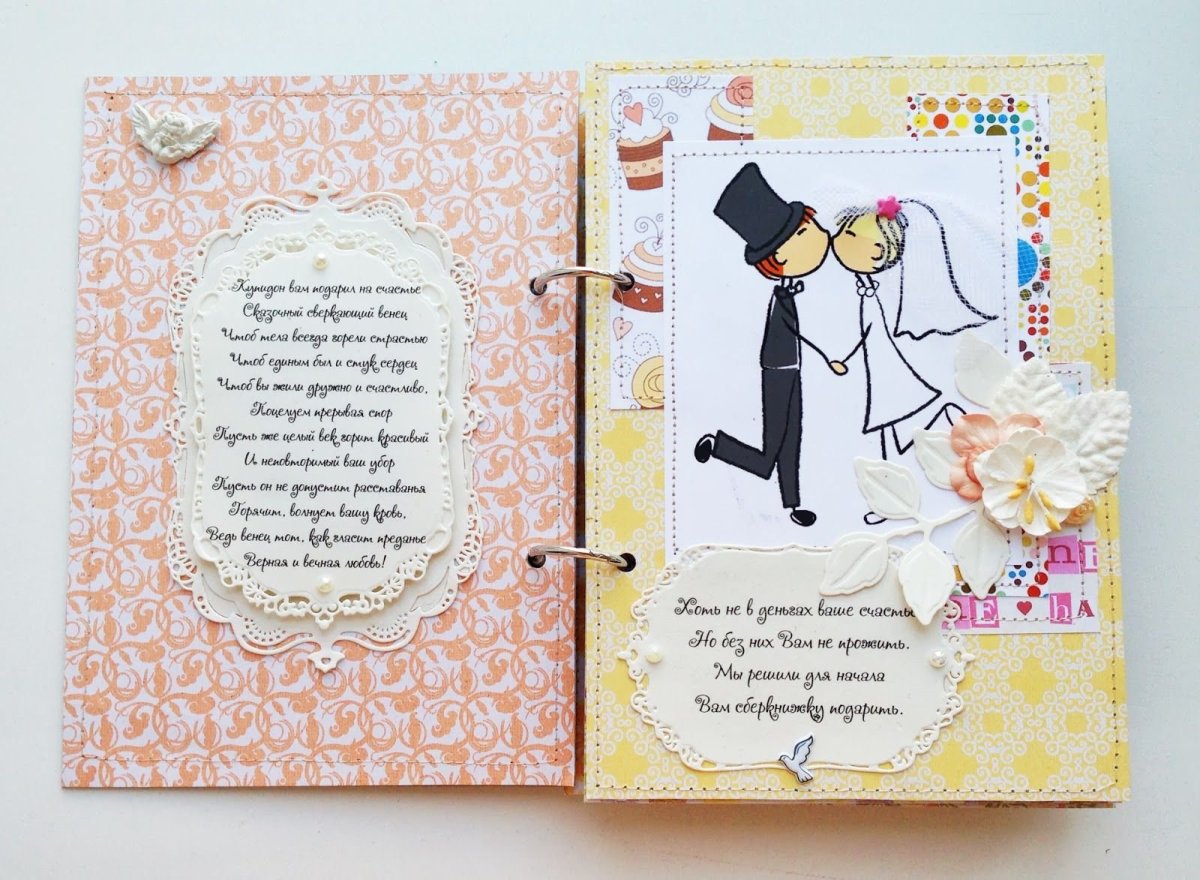 Купидон вам подарил на счастье
Сказочный сверкающий венец
Чтоб тела всегда горели страстью
Чтоб единым был и стук сердец
Чтоб вы жили дружно и счастливо,
Поцелуем прерывая спор
Пусть же целый век горит красивый
И неповторимый ваш убор
Пусть он не допустит расставанья
Горячит, волнует вашу кровь,
Ведь венец тот, как гласит преданье
Верная и вечная любовь!
Хоть не в деньгах ваше счастье
Но без них Вам не прожить.
Мы решили для начала
Вам сберкнижку подарить.
ni
SE ♥ hA